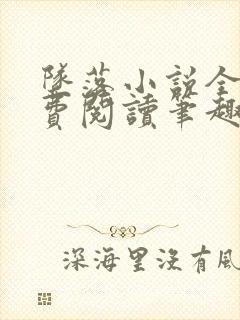 墜落小說全
費閱讀筆趣
深海里沒有風